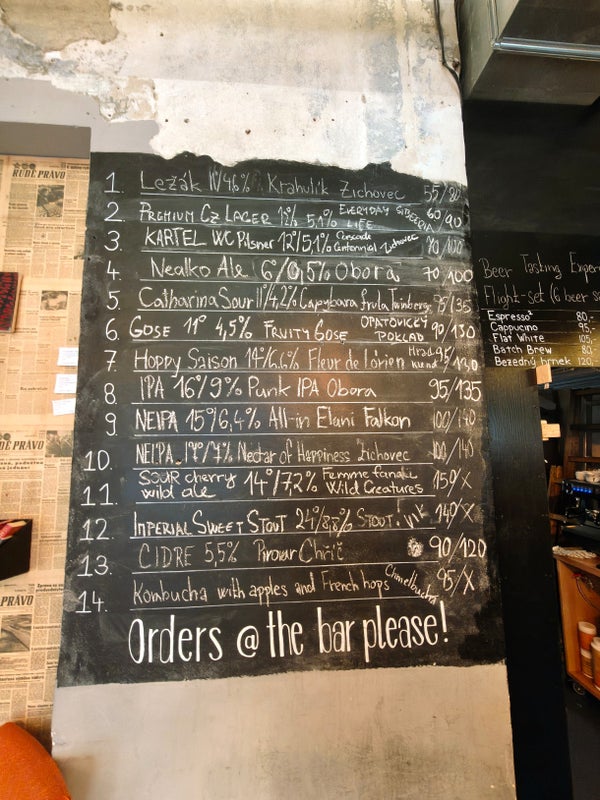 1. Ležák 11°/4,6% Krahulík Zichovec 55/80
2. PREMIUM CZ LAGER 12° 5,1% EVERYDAY LIFE SIBEERIA 60/90
3. KARTEL WC Pilsner 12°/5,1% Cascade Centennial Zichovec 70/100
4. Nealko Ale 6°/0,5% Obora 70/100
5. Catharina Sour 11°/4,2% Capybara frula Twinberg 95/135
6. GOSE 11° 4,5% FRUITY GOSE OPATOVICKÝ POKLAD 90/130
7. Hoppy Saison 14°/6,6% Fleur de Lorien Hrad 95/130
8. IPA 16°/9% Punk IPA Obora 95/135
9. NEIPA 15°/6,4% All-in Elani Falkon 100/140
10. NEIPA 17°/7% Nectar of Happiness Zichovec 100/140
11. SOUR cherry wild ale 14°/7,2% Femme fanaki Wild Creatures 150/X
12. IMPERIAL SWEET STOUT 24°/8,8% STOUT! Ink 149/X
13. CIDRE 5,5% Pivovar Chříč 90/120
14. Kombucha with apples and French hops Chmelbucha 95/X
Orders @ the bar please!
Beer Tasting
Flight-set (6 beer
Espresso 80,-
Cappucino 95,-
Flat White 105,-
Batch Brew 80,-
Bezedný hrnek 120,-
RUDÉ PRÁVO
DÉ PRÁVO
PRÁVO